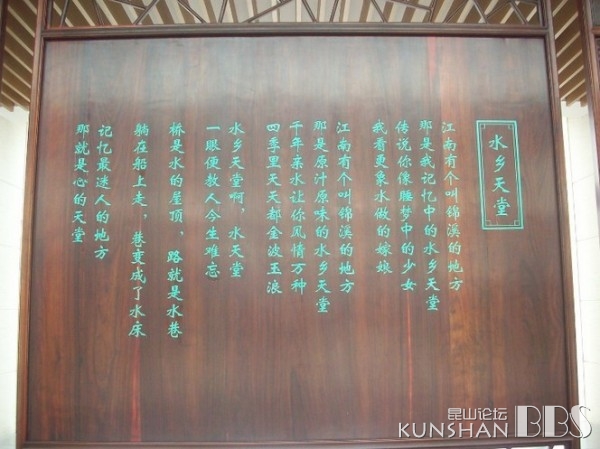 水乡天堂
江南有个叫锦溪的地方
那是我记忆中的水乡天堂
传说你像睡梦中的少女
我看更象水做的嫁娘
江南有个叫锦溪的地方
那是原汁原味的水乡天堂
千年亲水让你风情万种
四季里天天都金波玉浪
水乡天堂啊，水天堂
一眼便教人今生难忘
桥是水的屋顶，路就是水巷
躺在船上走，巷变成了水床
记忆最迷人的地方
那就是心的天堂
昆山论坛
KUNSHAN BBS